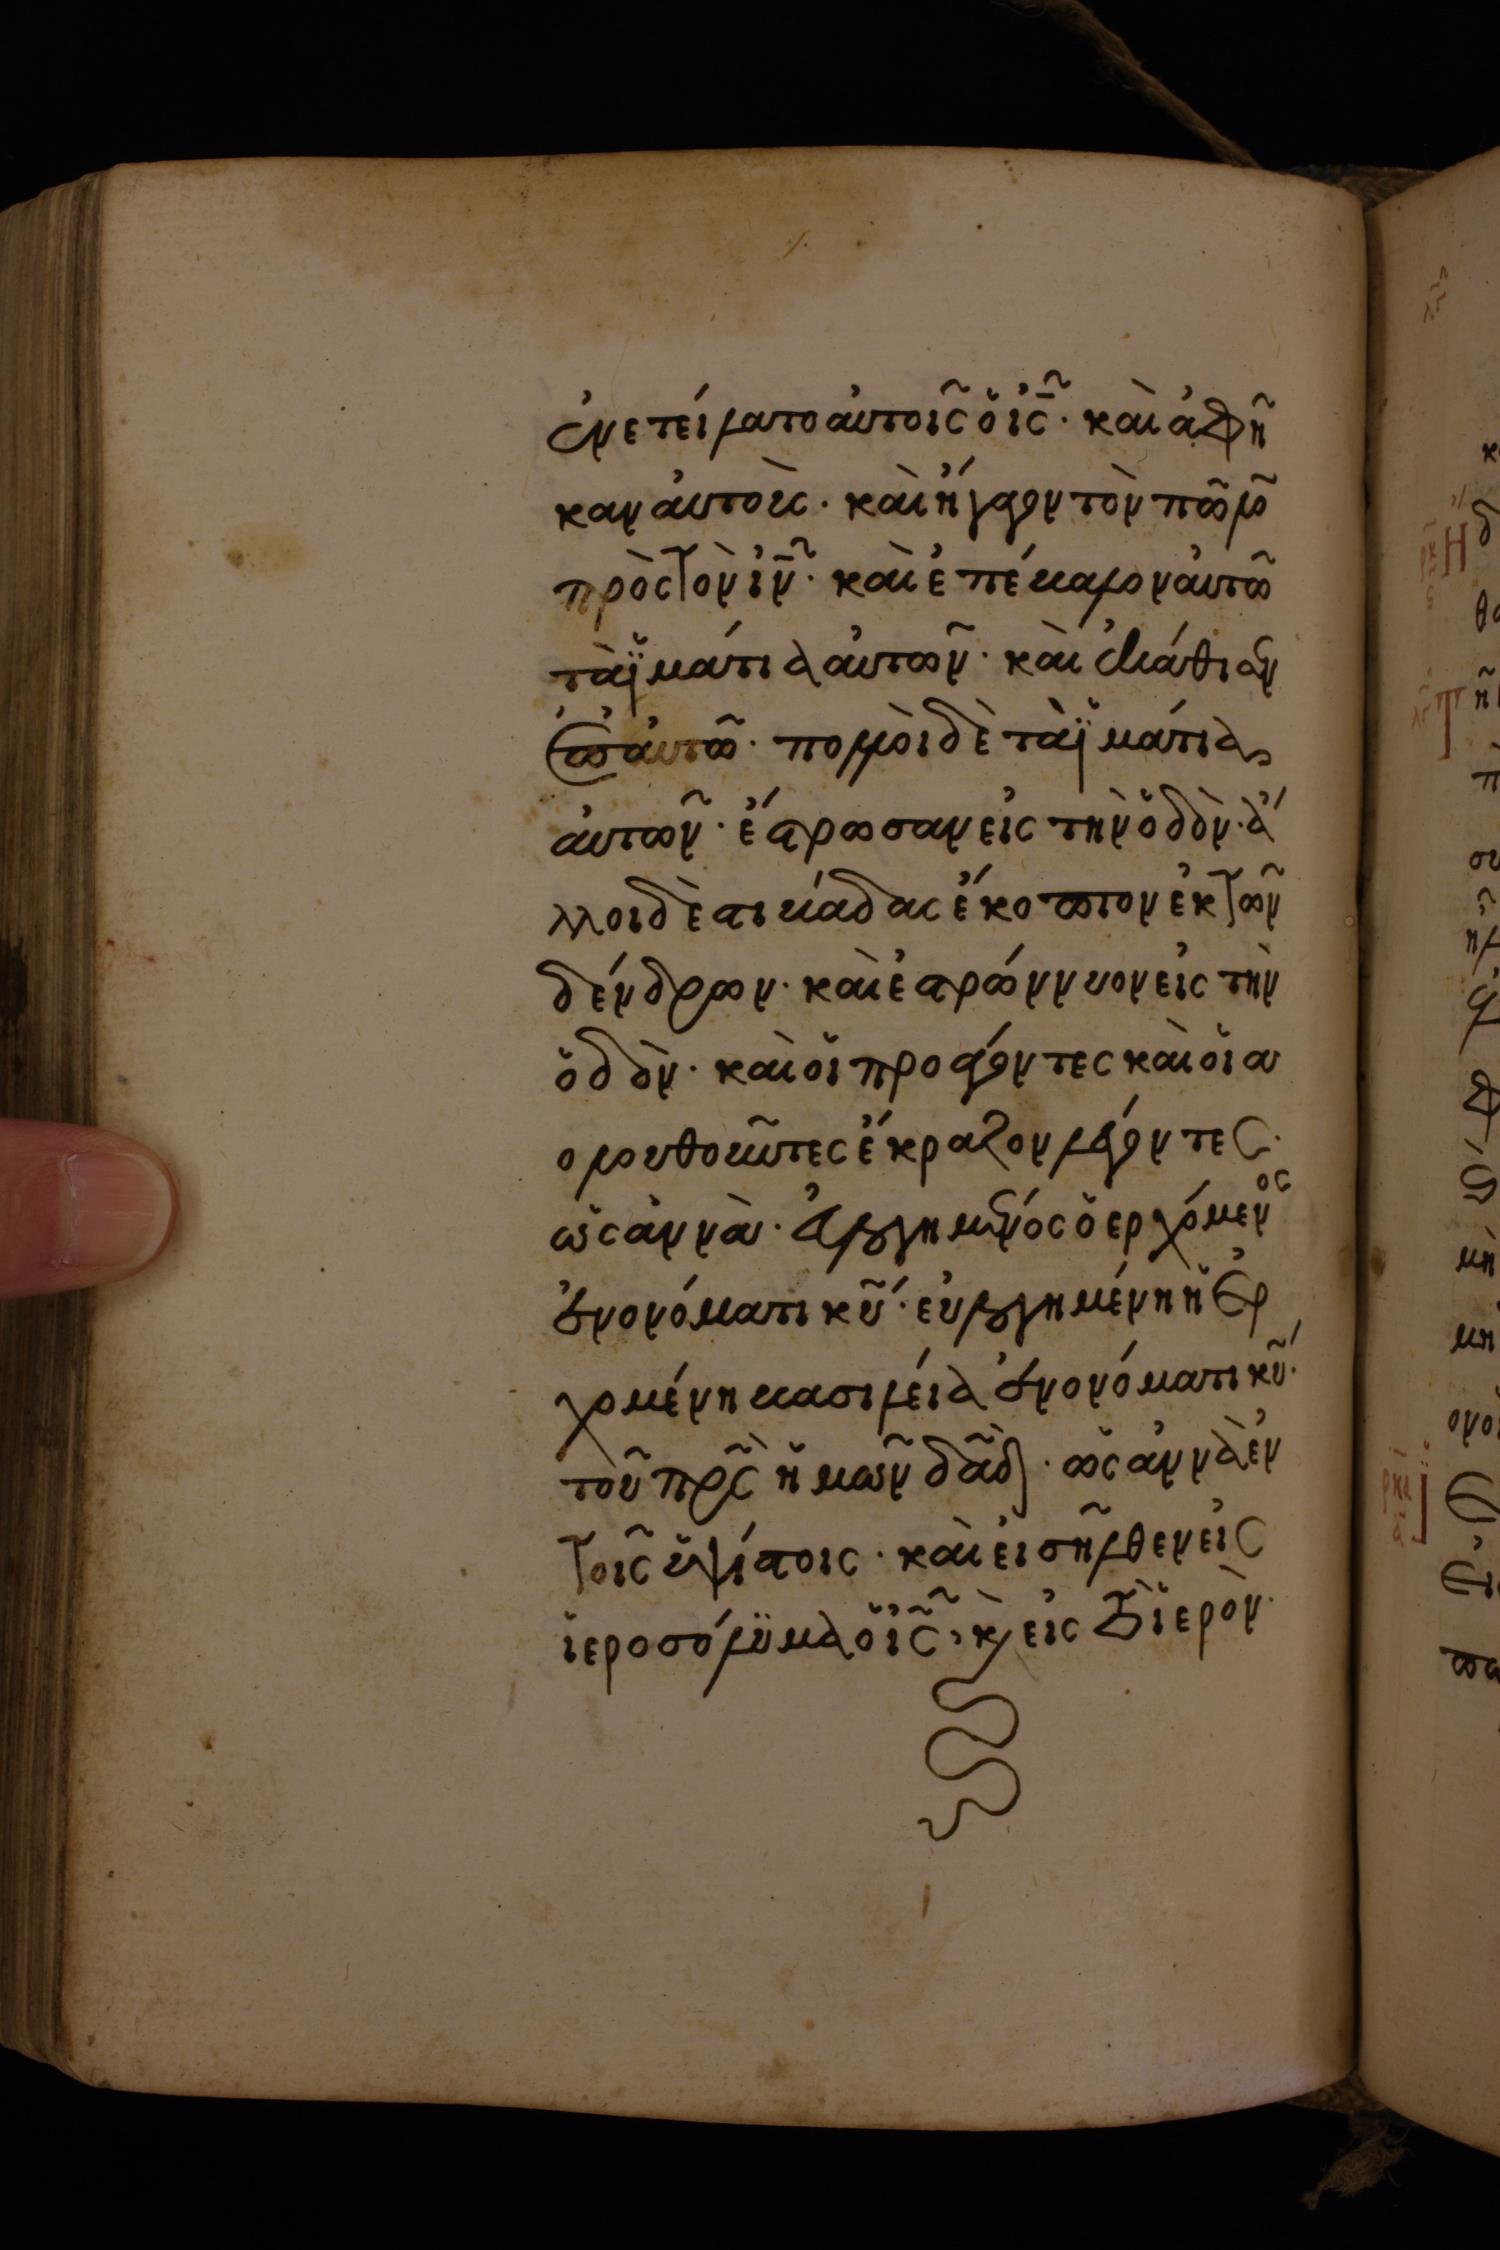 ἐνετείλατο αὐτοῖς ὁ ἰ̅ς̅· καὶ ἀφῆ
καν αὐτοὺς· καὶ ἤγαγον τὸν πῶλο
πρὸς τὸν ἰ̅ν̅· καὶ ἐπέβαλον αὐτῶ
τὰ ἱμάτια αὐτῶν· καὶ ἐκάθισεν
ἐπ' αὐτῶ· πολλοὶ δὲ τὰ ἱμάτια
αὐτῶν· ἔστρωσαν εἰς τὴν ὁδὸν· ἄ
λλοι δὲ στιβάδας ἔκοπτον ἐκ τῶν
δένδρων· καὶ ἐστρώννυον εἰς τὴν
ὁδὸν· καὶ οἱ προάγοντες καὶ οἱ α
ολουθοῦντες ἔκραζον λέγοντες·
ὡσἀννὰ· εὐλογημένος ὁ ερχόμενος
ἐν ονόματι κ̅υ̅· εὐλογημένη ἡ ἐρ
χομένη βασιλεία ἐν ονόματι κ̅υ̅·
τοῦ π̅ρ̅ς̅ ἡμῶν δ̅α̅δ̅· ὡσἀννὰ ἐν
τοῖς ὑψίστοις· καὶ εἰσῆλθεν εἰς
ἱεροσόλυμα ὁ ἰ̅ς̅, κ εἰς τὸ ἱερὸν·